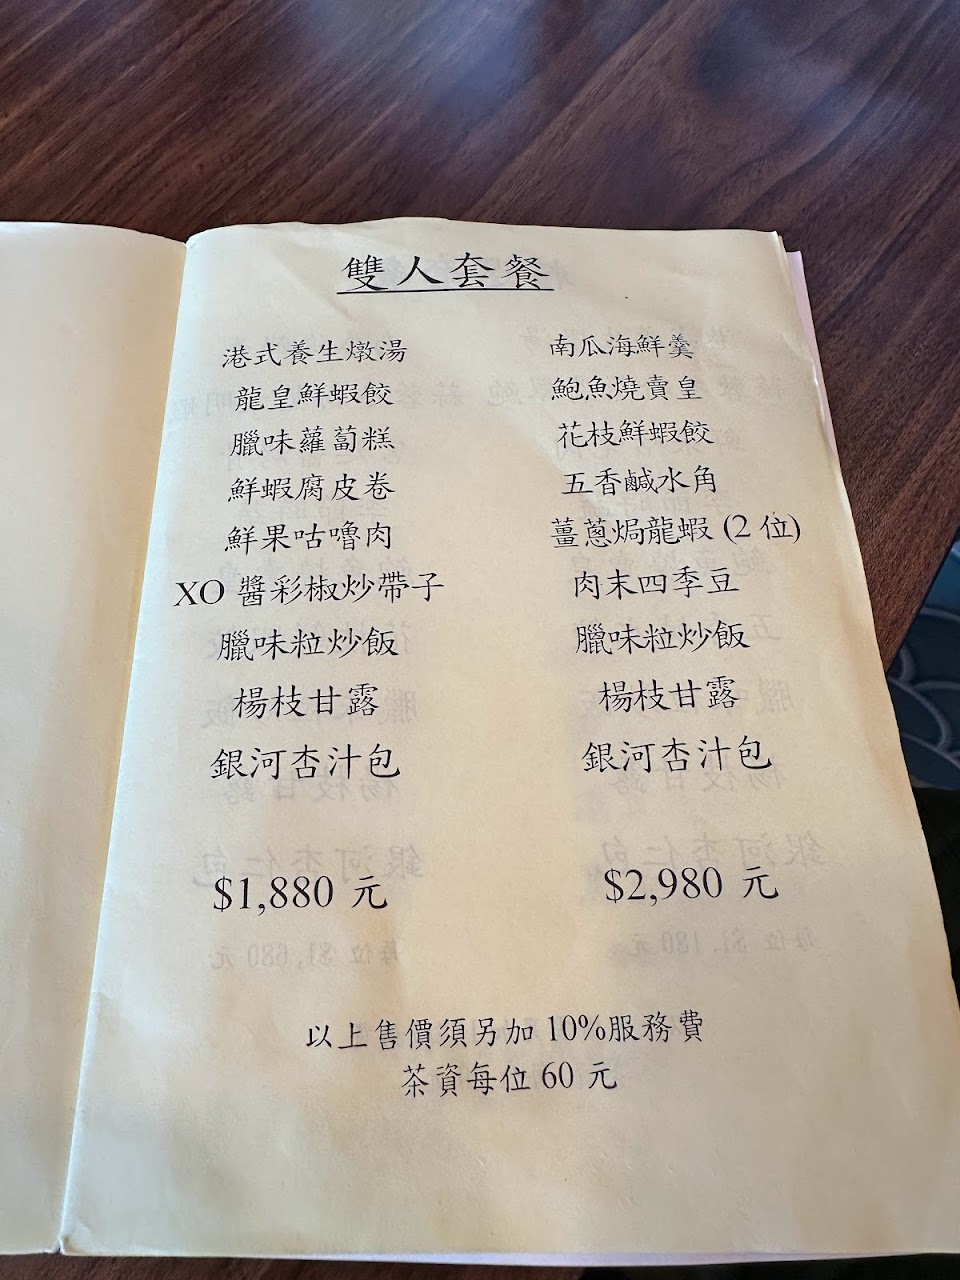 雙人套餐
港式養生燉湯
龍皇鮮蝦餃
臘味蘿蔔糕
鮮蝦腐皮卷
鮮果咕嚕肉
XO 醬彩椒炒帶子
臘味粒炒飯
楊枝甘露
銀河杏汁包
$1,880 元
南瓜海鮮羹
鮑魚燒賣皇
花枝鮮蝦餃
五香鹹水角
薑蔥焗龍蝦 (2 位)
肉末四季豆
臘味粒炒飯
楊枝甘露
銀河杏汁包
$2,980 元
以上售價須另加 10%服務費
茶資每位 60 元